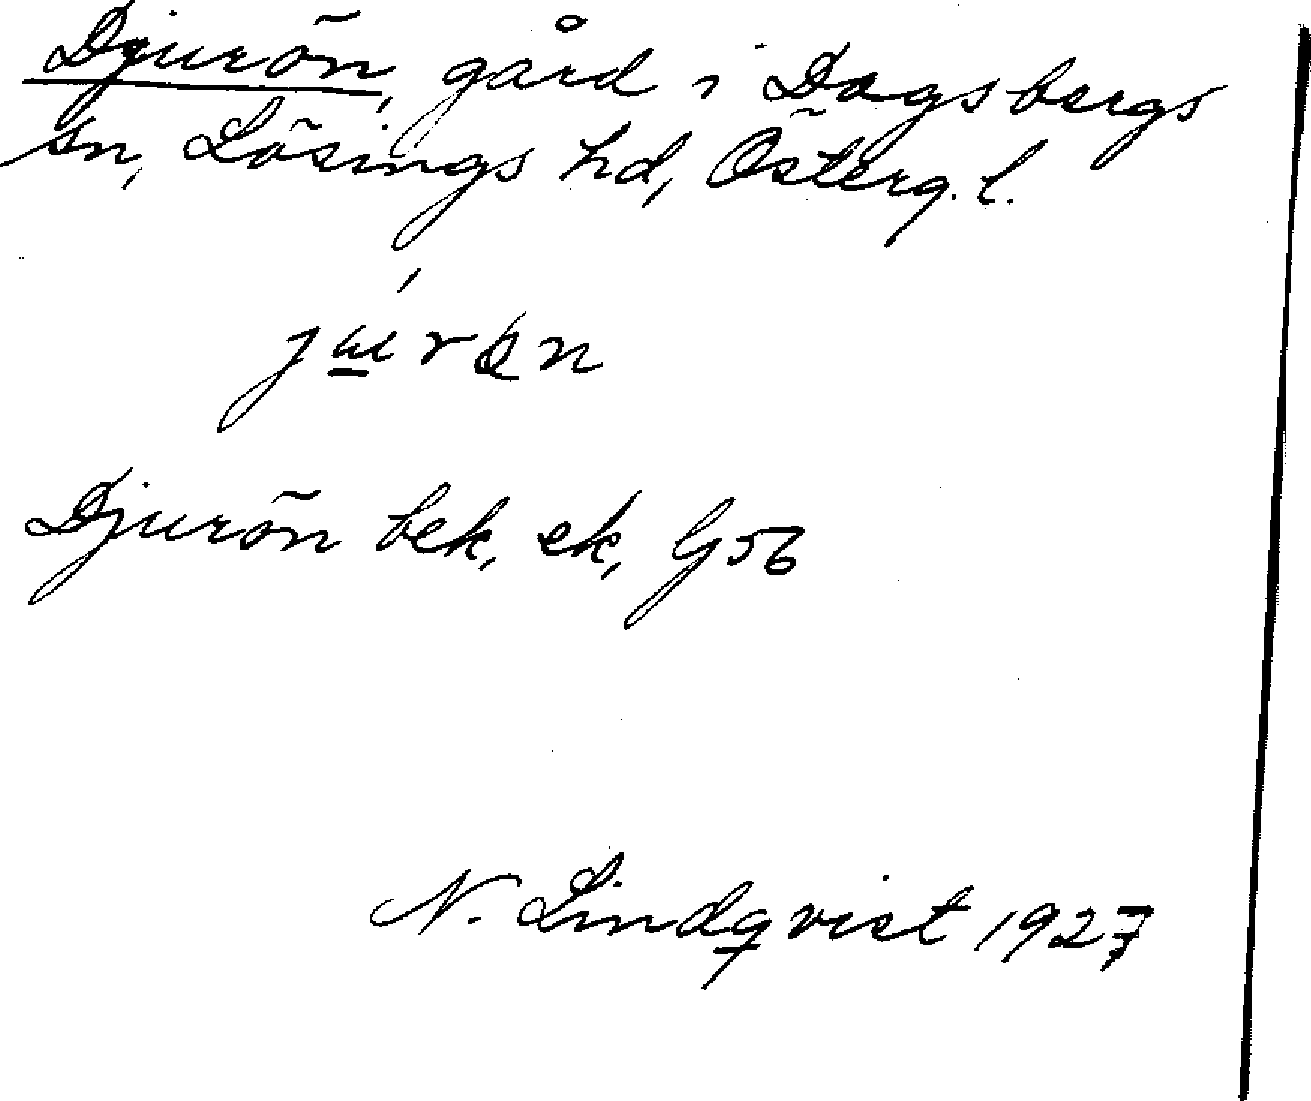 Djurön, gård i Dagsbergs
sn, Lösings hd, Österg. l.
Djurön bek, ek, G56
N. Lindqvist 1927